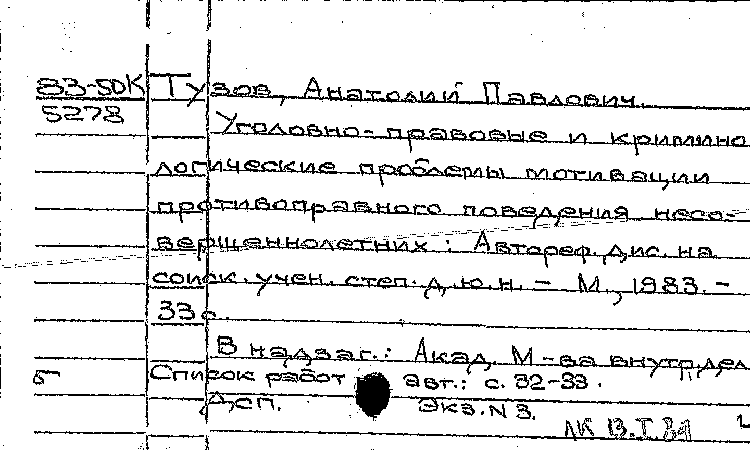 83-5ДК Тузов, Анатолий Павлович.
5278
Уголовно-правовые и кримино
логические проблемы мотивации
противоправного поведения несо-
вершеннолетних : Автореф. дис. на
соиск. учен. степ. д.ю.н. - М., 1983. -
33 с.
В надзаг.: Акад. М-ва внутр. дел
5 Список работ авт.: с. 32-33.
Дсп. Экз. N 3.